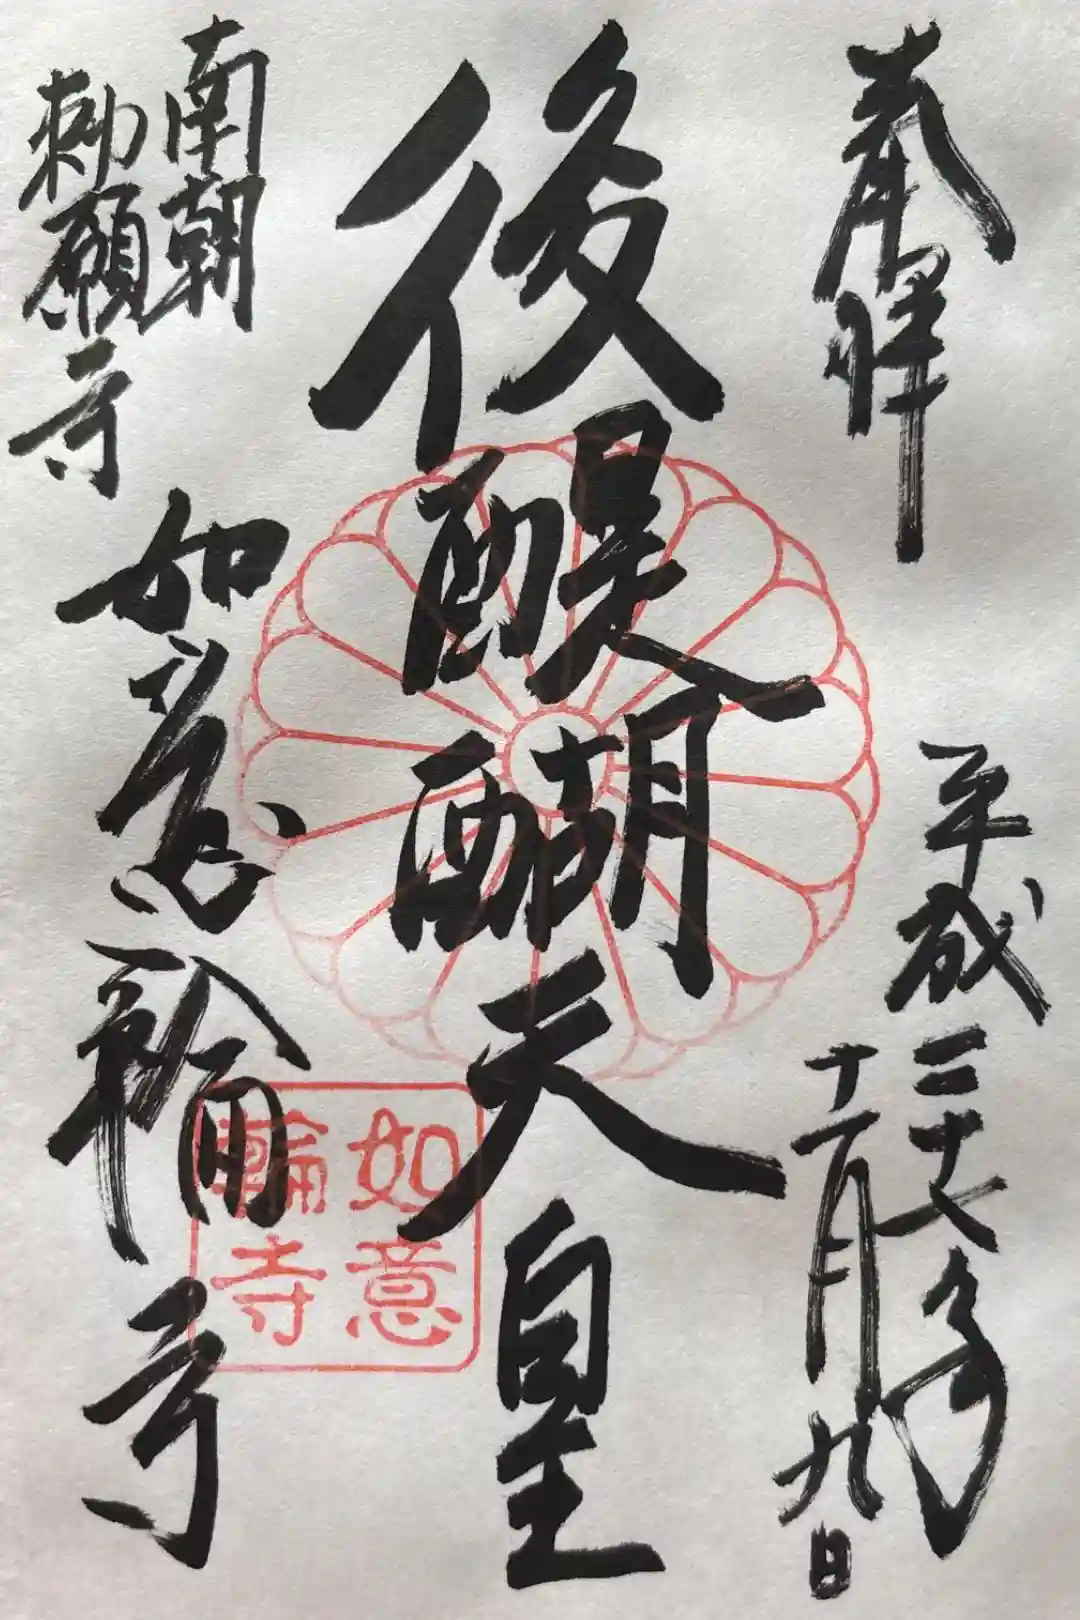 奉拝
平成二十六年
十一月九日
後醍醐天皇
南朝
勅願寺
如意輪寺
如意
輪寺